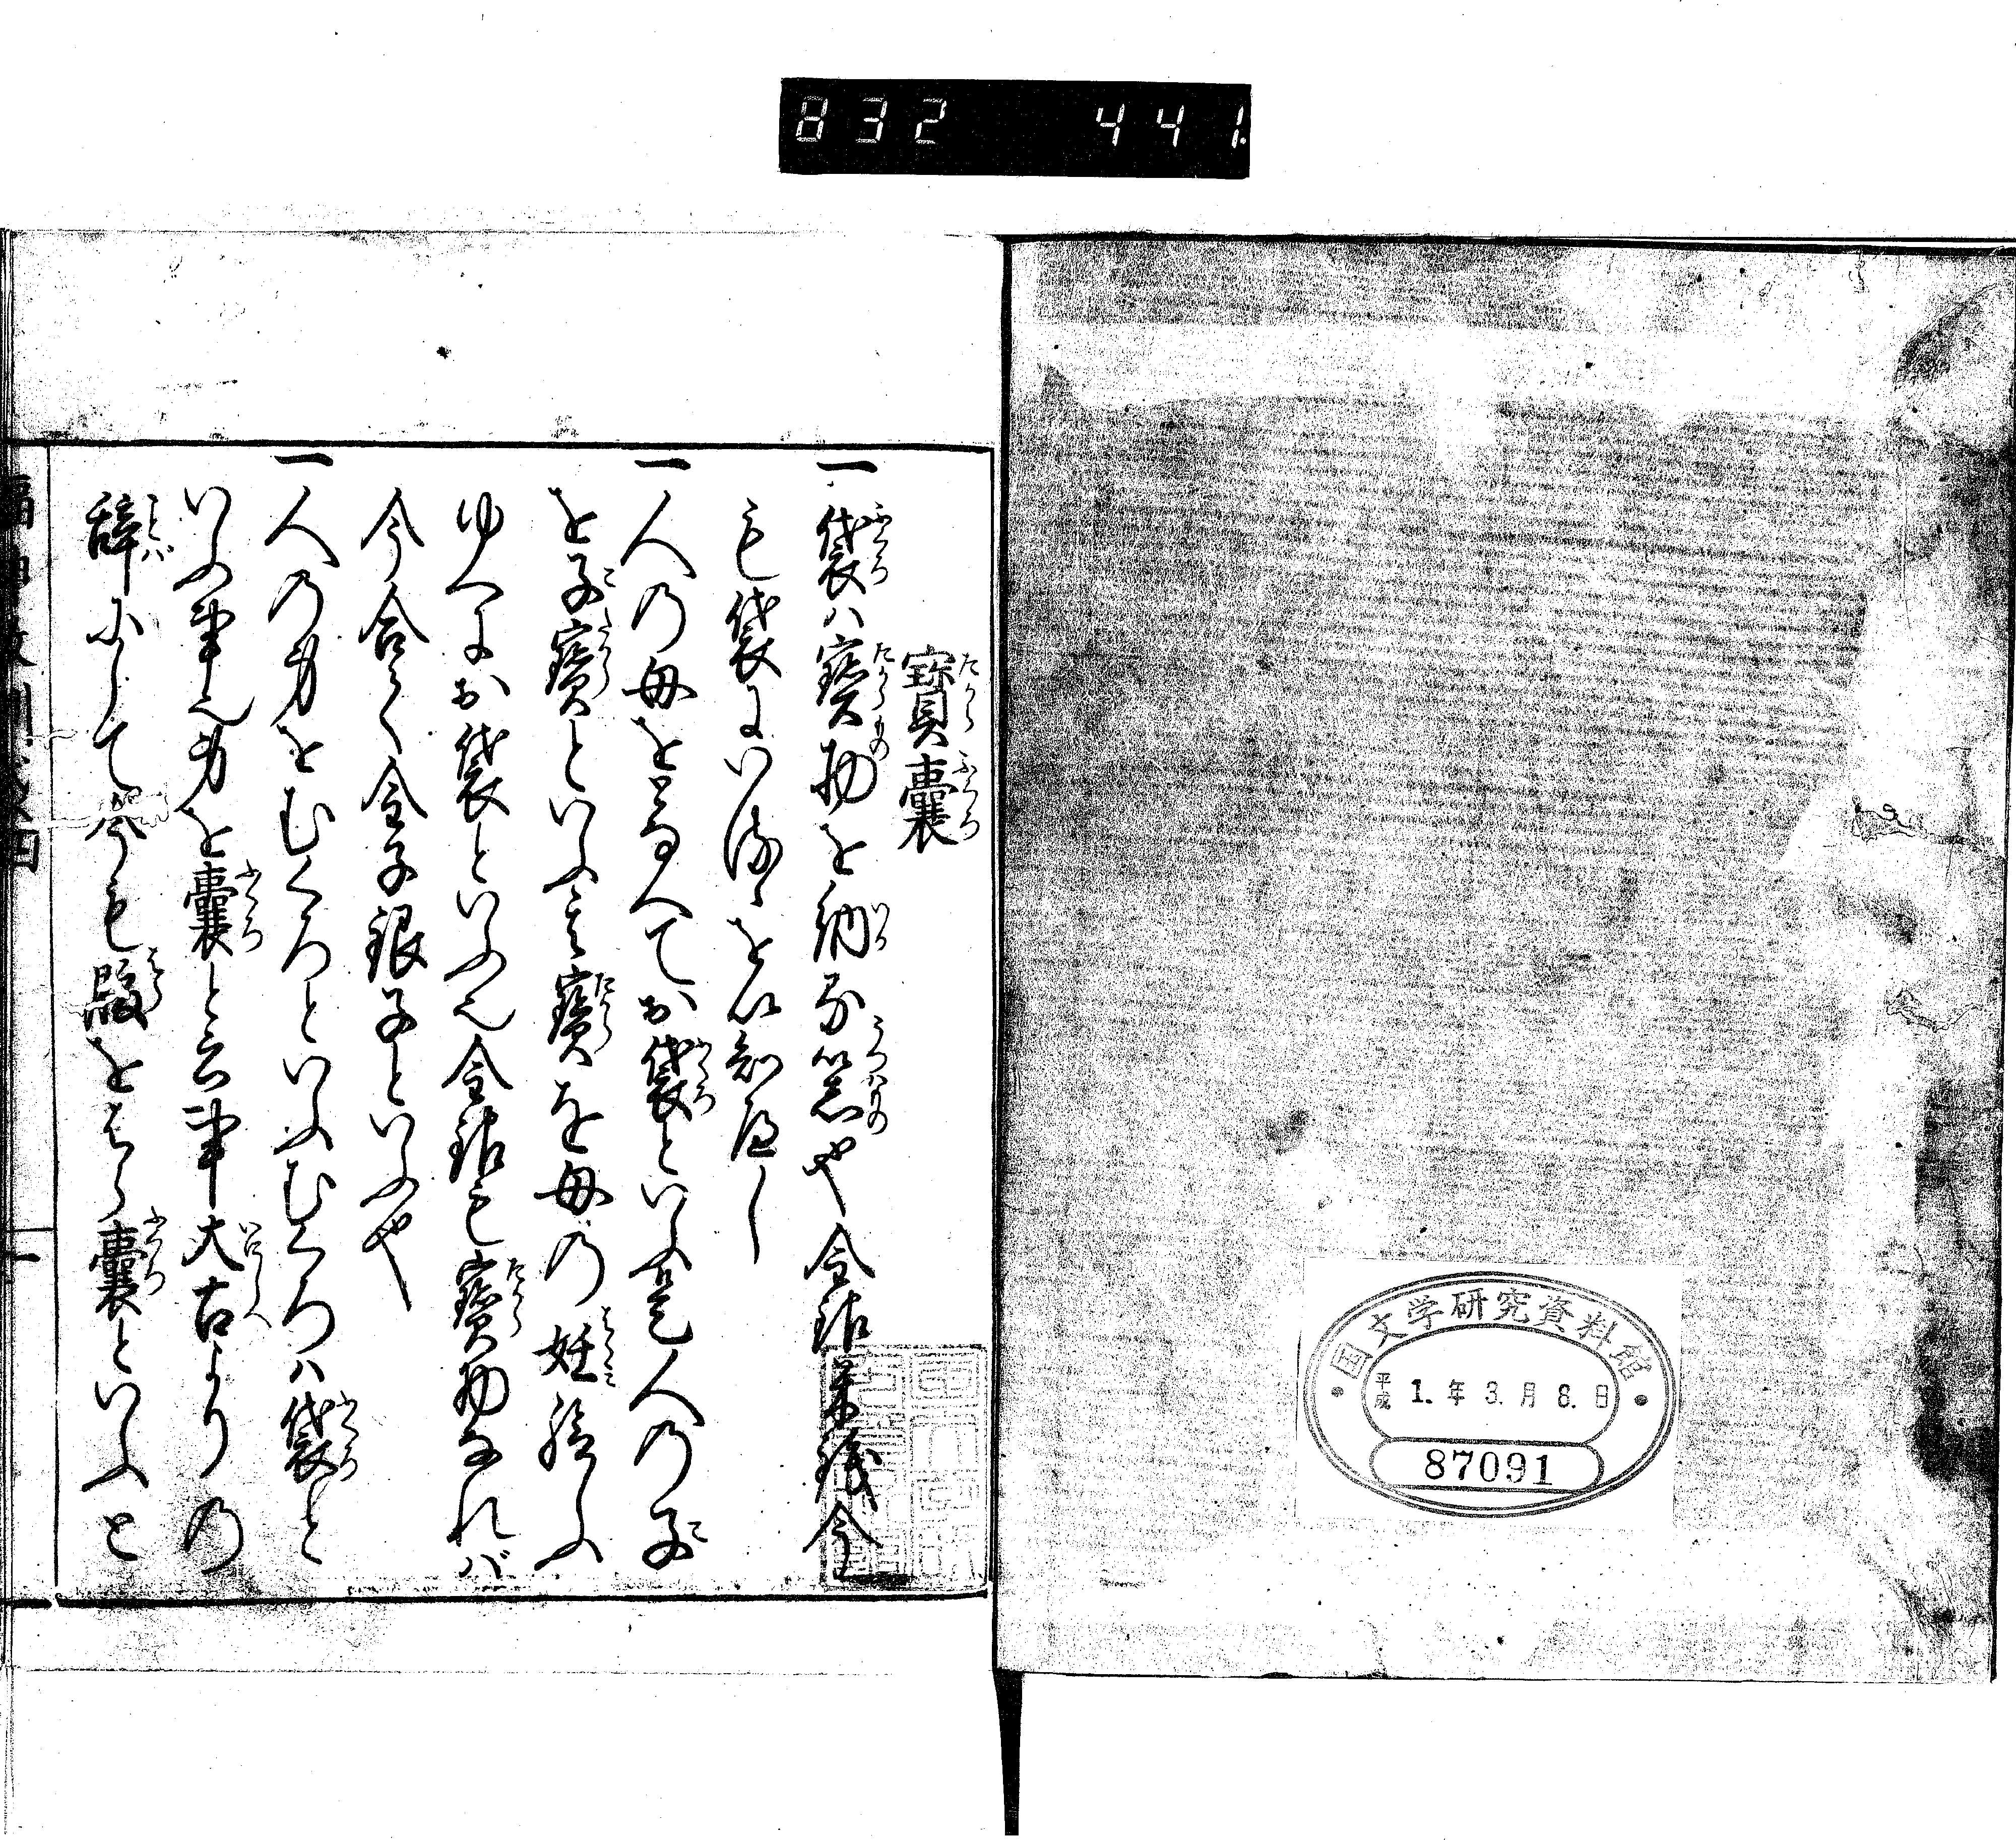 832 441.
国文学研究資料館
平成 1. 年 3. 月 8. 日
87091
寶囊
一袋ハ寶物を納る器や金銀米銭今
も袋にいるゝを以知べし
一人の母をとなへてお袋といふ是人の子
を子寶といふその寶を母の妊給ふ
ゆへにお袋といふ也金銀も寶物なれバ
今合て金子銀子といふや
一人の身をむくろといふむくろハ袋と
いふ事也身を囊と云事大古よりの
辞にして今も腹をはら囊といふこ